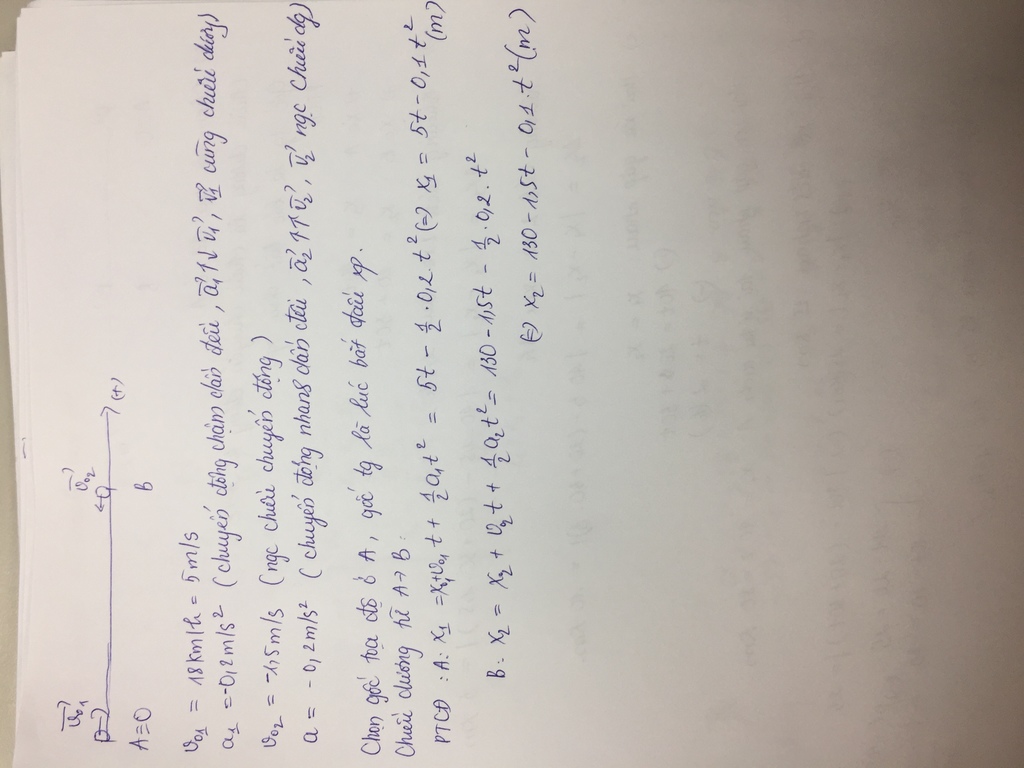 v⃗₀₁ v⃗₀₂
(+)
A≡O B
v₀₁ = 18km/h = 5m/s
a₁ = -0,2m/s² (chuyển động chậm dần đều, a⃗₁↑↓ v⃗₁, v⃗₁ cùng chiều dương)
v₀₂ = -1,5m/s (ngc chiều chuyển động)
a = -0,2m/s² (chuyển động nhanh dần đều, a⃗₂↑↑ v⃗₂, v⃗₂ ngc chiều dg)
Chọn gốc tọa độ ở A, gốc tg là lúc bắt đầu xp.
Chiều dương từ A→B:
PTCĐ : A: x₁ = x₀₁+v₀₁t + ½a₁t² = 5t - ½·0,2.t² (=) x₁ = 5t - 0,1t² (m)
B: x₂ = x₂ + v₂t + ½a₂t² = 130 - 1,5t - ½·0,2.t²
(=) x₂ = 130 - 1,5t - 0,1.t² (m)